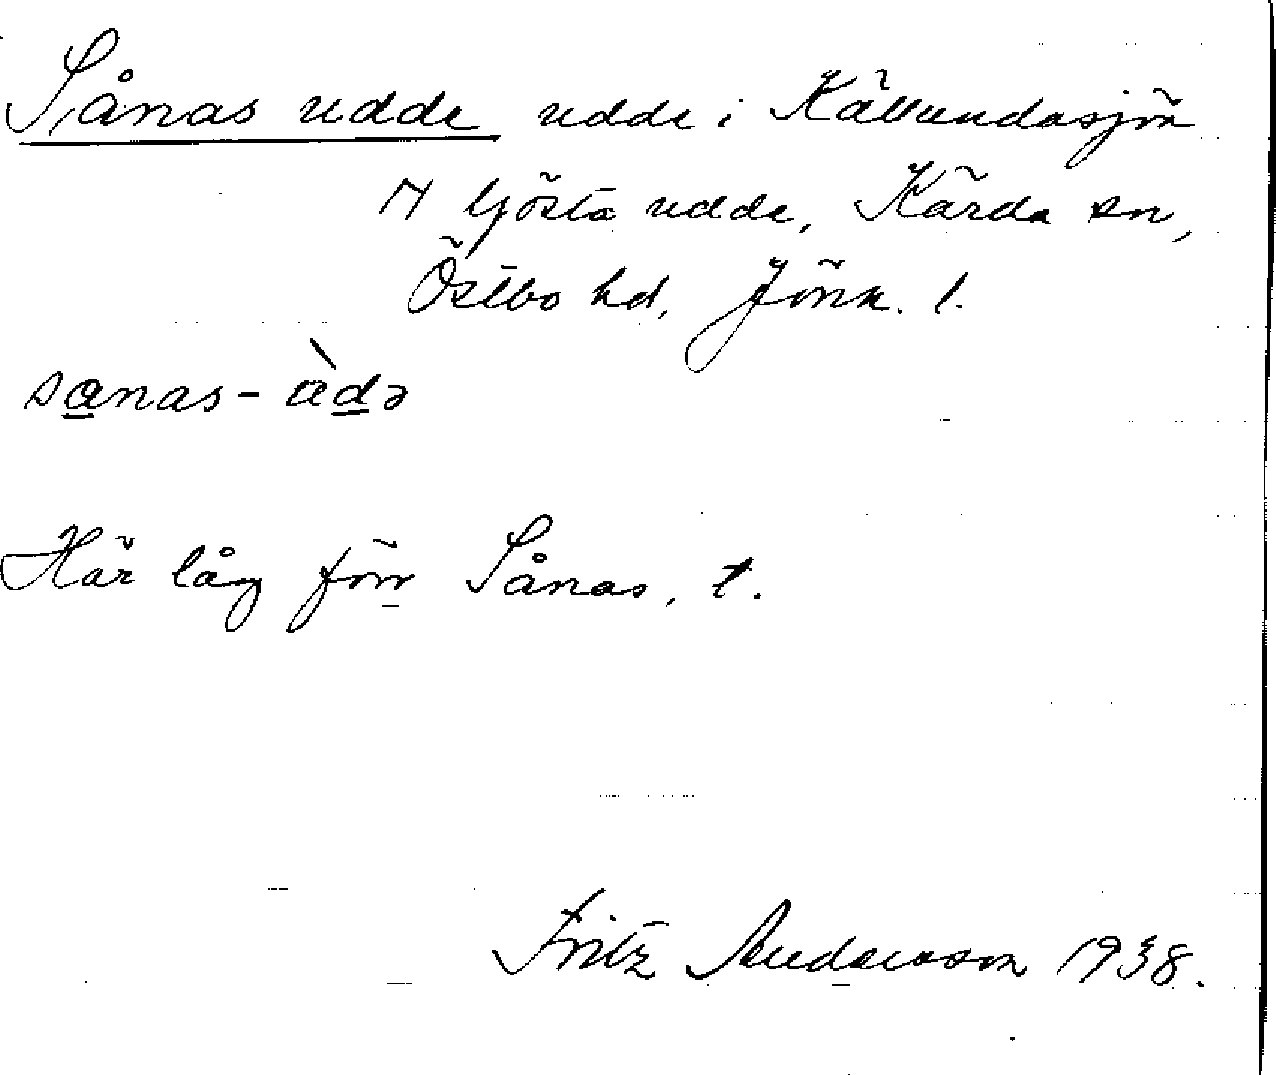 Sånas udde udde i Källundasjön
N Gösta udde, Kärda sn,
Östbo hd, Jönk. l.
sanas-ùdə
Här låg förr Sånas, t.
Fritz Andersson 1938.